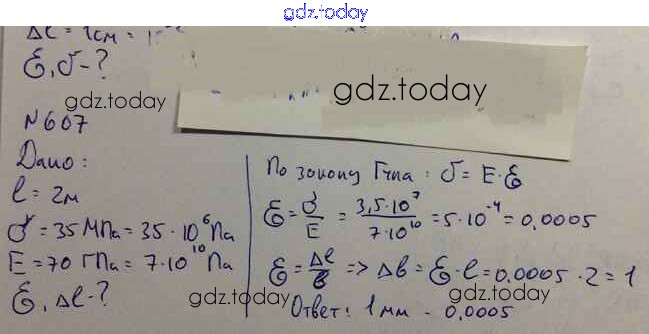 gdz.today
Δl = 1см = 10
ε, σ - ?
gdz.today
gdz.today
№607
Дано:
l = 2м
σ = 35 МПа = 35 · 10⁶ Па
E = 70 ГПа = 7·10¹⁰ Па
ε, Δl - ?
По закону Гука : σ = E · ε
ε = σ/E = 3,5·10⁷/7·10¹⁰ = 5·10⁻⁴ = 0,0005
ε = Δl/l => Δl = ε·l = 0,0005 · 2 = 1
Ответ: 1мм - 0,0005
gdz.today
gdz.today